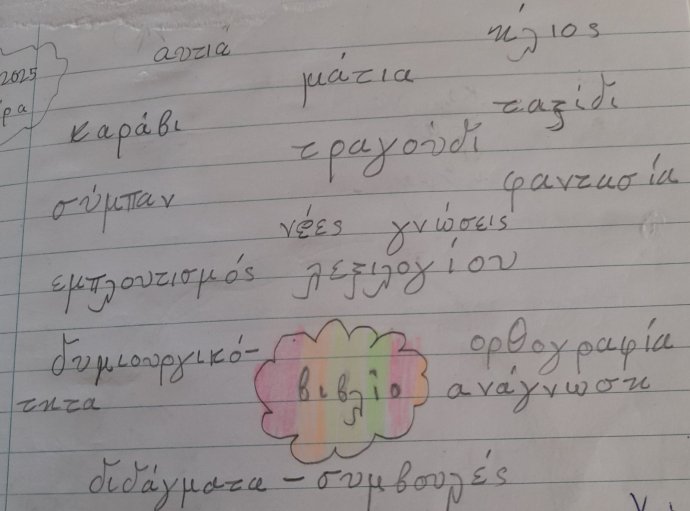 ήλιος
αυτιά
μάτια
2025
ρα
ταξίδι
καράβι
τραγούδι
φαντασία
σύμπαν
νέες γνώσεις
εμπλουτισμός λεξιλογίου
δυμιουργικό-
τητα
ορθογραφία
βιβλίο
ανάγνωση
διδάγματα - συμβουλές